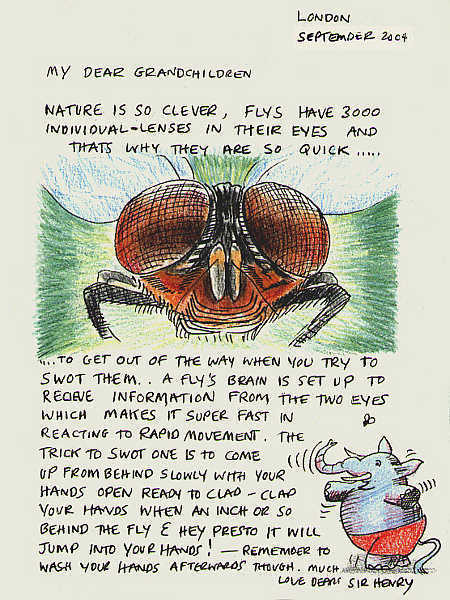 LONDON
SEPTEMBER 2004
MY DEAR GRANDCHILDREN
NATURE IS SO CLEVER, FLYS HAVE 3000
INDIVIDUAL-LENSES IN THEIR EYES AND
THATS WHY THEY ARE SO QUICK .....
....TO GET OUT OF THE WAY WHEN YOU TRY TO
SWOT THEM.. A FLY'S BRAIN IS SET UP TO
RECEIVE INFORMATION FROM THE TWO EYES
WHICH MAKES IT SUPER FAST IN
REACTING TO RAPID MOVEMENT. THE
TRICK TO SWOT ONE IS TO COME
UP FROM BEHIND SLOWLY WITH YOUR
HANDS OPEN READY TO CLAP - CLAP
YOUR HANDS WHEN AN INCH OR SO
BEHIND THE FLY & HEY PRESTO IT WILL
JUMP INTO YOUR HANDS! - REMEMBER TO
WASH YOUR HANDS AFTERWARDS THOUGH. MUCH
LOVE DEARS SIR HENRY